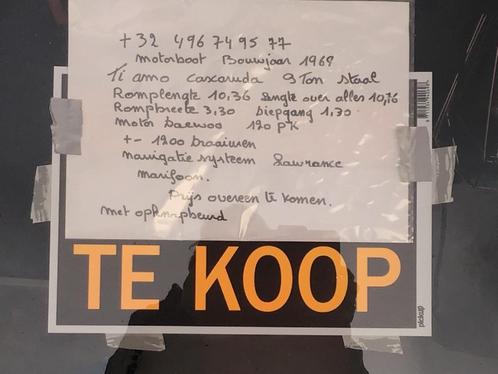 +32 496 74 95 77
Motorboot Bouwjaar 1969
Ti amo cascaruda 9 Ton staal
Romplengte 10,36 Lengte over alles 10,76
Rompbreete 3,30 Diepgang 1,30
Motor Daewoo 120 PK
+- 1200 Draaiuren
Navigatie systeem Lawrance
Marifoon.
Prijs overeen te komen.
Met opknapbeurd
TE KOOP
pickup